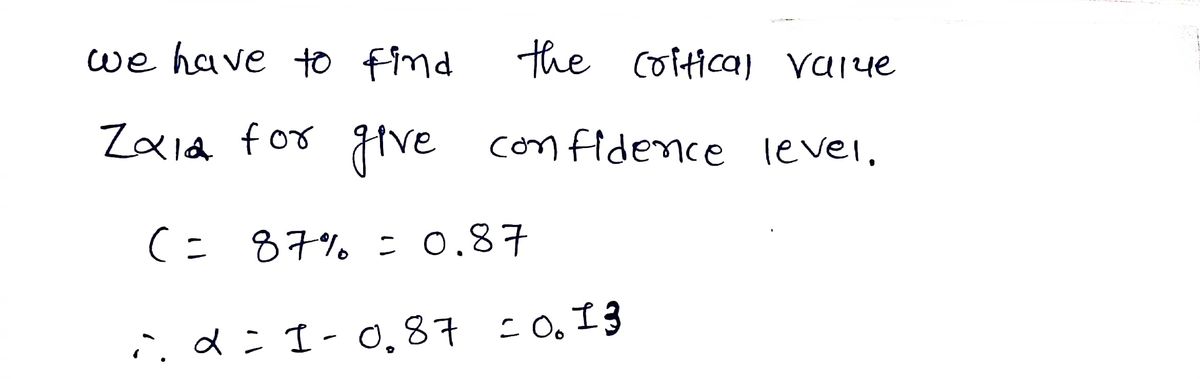 we have to find the critical value
Zα/2 for give confidence level.
C = 87% = 0.87
∴ α = 1 - 0.87 = 0.13